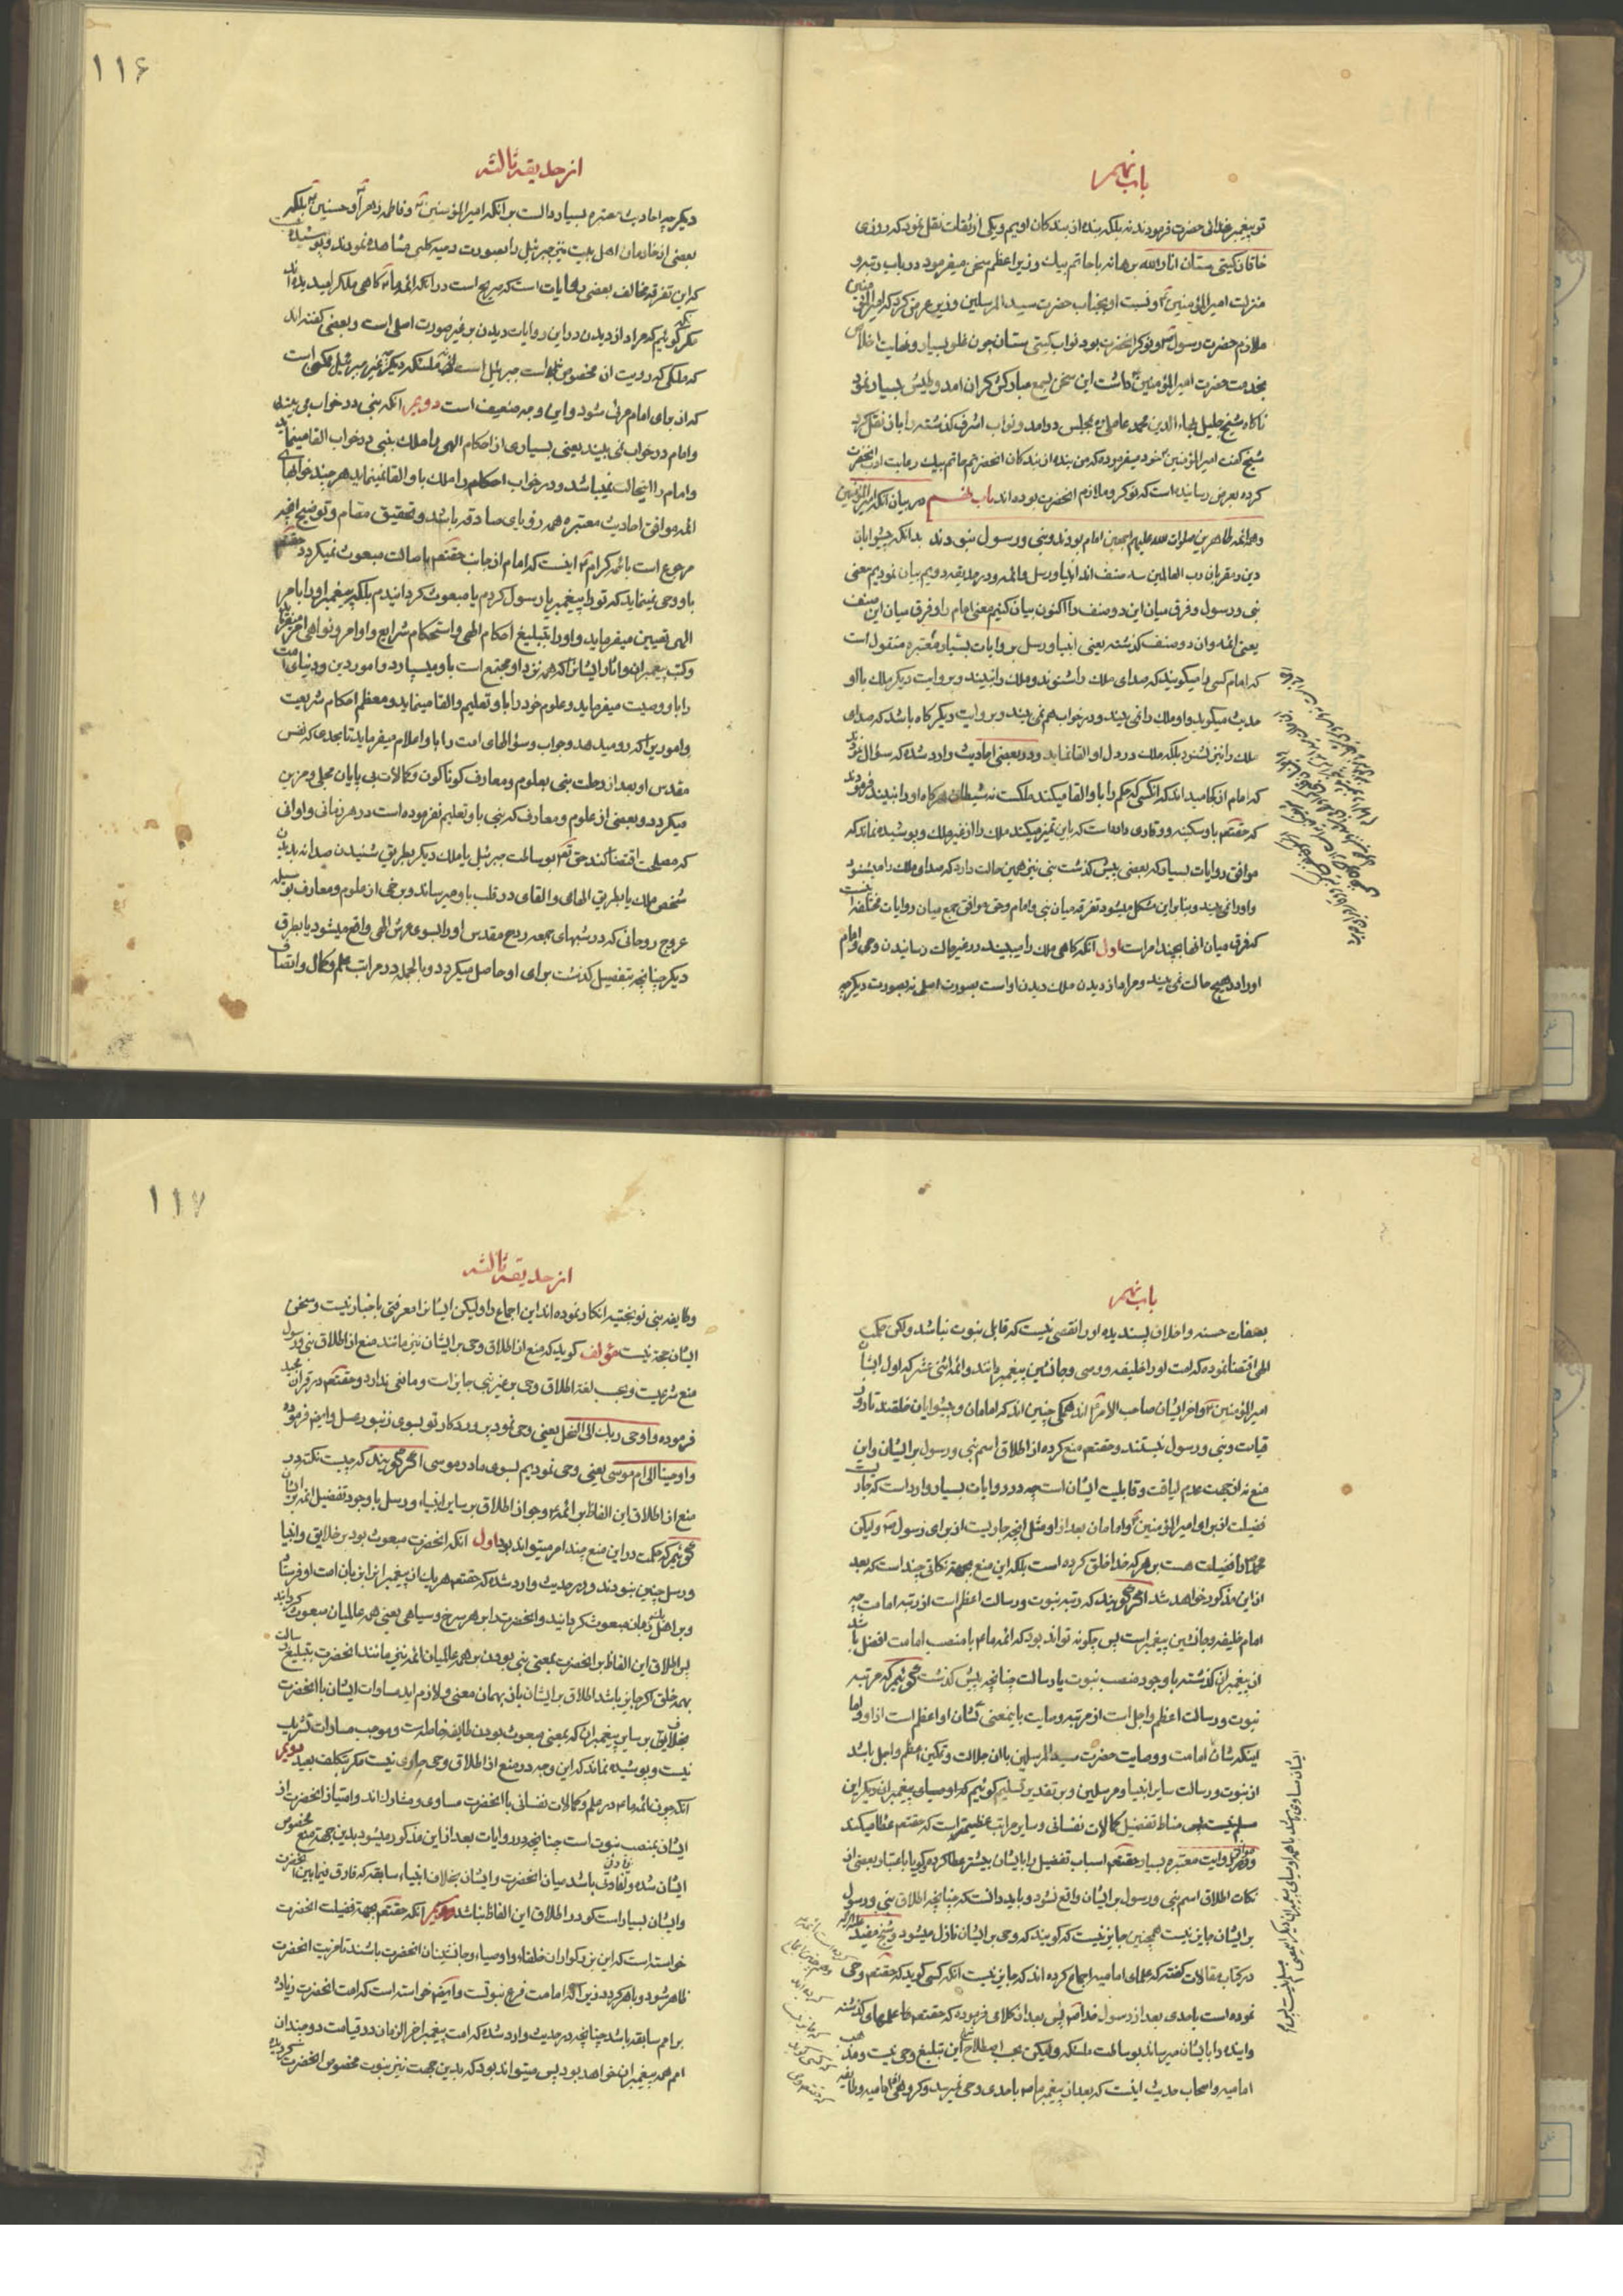 باب نهم
تو پیغمبر خدائی حضرت فرمودند نه بلکه بنده از بندکان اویم و یکی از ثقات نقل نمود که روزی
خاقان کیتی ستان انار الله برهانه با حاتم بیک وزیر اعظم سخن میفرمود در باب رتبه و
منزلت امیر المؤمنین و نسبت او بجناب حضرت سید المرسلین وزیر عرض کرد که امیر المؤمنین
ملازم حضرت رسول و نوکر انحضرت بود نواب کیتی ستان چون غلو بسیار و نهایت اخلاص
بخدمت حضرت امیر المؤمنین داشت این سخن بسمع مبارکش کران امد و طیش بسیار نمود
ناکاه شیخ جلیل بهاء الدین محمد عاملی بمجلس درامد و نواب اشرف کذشته را باز نقل کرد
شیخ کفت امیر المؤمنین خود میفرموده که من بنده از بندکان انحضرتم حاتم بیک رعایت ادب انحضرت
کرده بعرض رسانیده است که نوکر و ملازم انحضرت بوده اند باب نهم در بیان انکه امیر المؤمنین
و همه ائمه طاهرین صلوات الله علیهم اجمعین امام بودند و نبی و رسول نبودند بدانکه پیشوایان
دین و مقربان رب العالمین سه صنف اند انبیا و رسل و ائمه و در حدیقه دویم بیان نمودیم معنی
نبی و رسول و فرق میان این دو صنف را اکنون بیان کنیم معنی امام را و فرق میان این صنف
یعنی ائمه و ان دو صنف کذشته یعنی انبیا و رسل بروایات بسیار معتبره منقول است
که امام کسی را میکویند که صدای ملک را شنوند و ملک را نبیند و بروایت دیکر ملک با او
حدیث میکوید و او ملک را نمی بیند و در خواب هم نمی بیند و بروایت دیکر کاه باشد که صدای
ملک را نیز نشنود بلکه ملک در دل او القا نماید و در بعضی احادیث وارد شده که سؤال نمودند
که امام از کجا میداند که انکسی که حکم را با و القا میکند ملکست نه شیطان هرکاه او را نبیند فرمودند
که حقتعم باو سکینه و وقاری داده است که باین تمیز میکند ملک را از غیر ملک و پوشیده نماند که
موافق روایات بسیار که بعضی پیش کذشت نبی نیز همین حالت دارد که صدای ملک را میشنود
و او را نمی بیند و بنابراین مشکل میشود تفرقه میان نبی و امام و حق موافق جمع میان روایات مختلفه اینست
که فرق میان انها بچند امر است اول انکه کاهی ملک را می بیند در غیر حالت رسانیدن وحی و امام
او را در هیچ حالت نمی بیند و مراد از دیدن ملک دیدن او است بصورت اصلی نه بصورت دیکر چه
۱۱۶
از حدیقه ثالثه
دیکر چه احادیث معتبره بسیار دالست بر انکه امیر المؤمنین و فاطمه زهرا و حسنین بلکه
بعضی از خادمان اهل بیت نیز جبرئیل را بصورت دحیه کلبی مشاهده نمودند و پوشیده نیست
که این تفرقه مخالف بعضی روایات است که صریح است در انکه ائمه کاهی ملک را میدیده اند
مکر کوئیم که مراد از دیدن در این روایات دیدن بر غیر صورت اصلی است و بعضی کفته اند
که ملکی که رویت ان مخصوص است جبرئیل است ملئکه دیکر غیر جبرئیل ممکن است
که از برای امام مرئی شود و این وجه ضعیف است دویم انکه نبی در خواب می بیند
و امام در خواب نمی بیند یعنی بسیاری از احکام الهی را ملک بنبی در خواب القا مینماید
و امام را اینحالت نمیباشد و در خواب احکام را ملک باو القا نمینماید هر چند خوابهای
ائمه موافق احادیث معتبره همه رؤیای صادقه باشد و تحقیق مقام و توضیح انچه
مرجوع است بائمه کرام اینست که امام از جانب حقتعم باصالت مبعوث نمیکردد حقتعم
باو وحی نمینماید که تو را پیغمبر یا رسول کردم یا مبعوث کردانیدم بلکه پیغمبر او را بامر
الهی تعیین میفرماید و او را بتبلیغ احکام الهی و استحکام شرایع و اوامر و نواهی امر میفرماید
و کتب پیغمبران و اثار ایشانرا که همه نزد او مجتمع است باو میسپارد و امور دین و دنیای امت
را باو وصیت میفرماید و علوم خود را باو تعلیم و القا مینماید و معظم احکام شریعت
و اموریرا که رو میدهد و جواب و سؤالهای امت را باو اعلام میفرماید تا بحدی که نفس
مقدس او بعد از رحلت نبی بعلوم و معارف کوناکون و کمالات بی پایان محلی و مزین
میکردد و بعضی از علوم و معارف که نبی باو تعلیم نفرموده است در هر زمانی و اوانی
که مصلحت اقتضا کند حق تعم بوساطت جبرئیل یا ملک دیکر بطریق شنیدن صدا نه بدیدن
شخص ملک یا بطریق الهام و القای در قلب باو میرساند و برخی از علوم و معارف بوسیله
عروج روحانی که در شبهای جمعه روح مقدس او را بسوی عرش الهی واقع میشود یا بطرق
دیکر چنانچه بتفصیل کذشت برای او حاصل میکردد و بالجمله در مراتب علم و کمال و اتصاف
باب نهم
بصفات حسنه و اخلاق پسندیده او را نقصی نیست که قابل نبوت نباشد ولکن حکمت
الهی اقتضا نموده که امت او را خلیفه و وصی و جانشین پیغمبر دانند و ائمه اثنی عشر که اول ایشان
امیر المؤمنین و اخر ایشان صاحب الامر اند همکی چنین اند که امامان و پیشوایان خلقند تا روز
قیامت و نبی و رسول نیستند و حقتعم منع کرده از اطلاق اسم نبی و رسول بر ایشان و این
منع نه از جهت عدم لیاقت و قابلیت ایشان است چه در روایات بسیار وارد است که جاریست
فضیلت از برای امیر المؤمنین و امامان بعد از او مثل انچه جاریست از برای رسول ولیکن
محمد را فضیلت هست بر هر که خدا خلق کرده است بلکه این منع بجهة نکاتی چند است که بعد
از این مذکور خواهد شد اکر کویند که رتبه نبوت و رسالت اعظم است از رتبه امامت چه
امام خلیفه و جانشین پیغمبر است پس چکونه تواند بود که ائمه ما با منصب امامت افضل باشد
از پیغمبران کذشته باوجود منصب نبوت یا رسالت چنانچه پیش کذشت کوئیم که مرتبه
نبوت و رسالت اعظم و اجل است از مرتبه وصایت باینمعنی که شان او اعظم است از او و اما
اینکه شان امامت و وصایت حضرت سید المرسلین با ان جلالت و تمکین اعظم و اجل باشد
از نبوت و رسالت سایر انبیا و مرسلین و بر تقدیر تسلیم کوئیم که اوصیای پیغمبران دیکر این
مسلم نیست پس مناط تفضیل کمالات نفسانی و سایر مراتب عظیمه است که حقتعم عطا میکند
روایت معتبره بسیار حقتعم اسباب تفضیل را بایشان بیشتر عطا کرده کو با باعتبار بعضی از
نکات اطلاق اسم نبی و رسول بر ایشان واقع نشود و باید دانست که چنانچه اطلاق نبی و رسول
بر ایشان جایز نیست همچنین جایز نیست که کویند که وحی بر ایشان نازل میشود و شیخ مفید
در کتاب مقالات کفته که علمای امامیه اجماع کرده اند که جایز نیست انکه کسی کوید که حقتعم وحی
نموده است باحدی بعد از رسول خدا پس بعد از کلامی فرموده که حقتعم علمهای کذشته
و اینده را بایشان میرساند بوساطت ملئکه ولیکن بحسب اصطلاح این تبلیغ وحی نیست و مذهب
امامیه و اصحاب حدیث اینست که بعد از پیغمبر ما باحدی وحی نمیرسد و کروهی از امامیه و طایفه
۱۱۷
از حدیقه ثالثه
و طایفه بنی نوبختیه انکار نموده اند این اجماع را ولیکن ایشانرا معرفتی باخبار نیست و سخن
ایشان حجة نیست مؤلف کوید که منع از اطلاق وحی بر ایشان نیز مانند منع از اطلاق نبی و رسول
منع شرعیست و بحسب لغة اطلاق وحی بر غیر نبی جایز است و مانعی ندارد و حقتعم در قران مجید
فرموده و اوحی ربک الی النحل یعنی وحی نمود پروردکار تو بسوی زنبور عسل و ایضا فرموده
و اوحینا الی ام موسی یعنی وحی نمودیم بسوی مادر موسی اکر کویند که چیست نکته در
منع از اطلاق این الفاظ بر ائمه و جواز اطلاق بر سایر انبیاء و رسل با وجود تفضیل ائمه بر ایشان
کوئیم که حکمت در این منع چند امر میتواند بود اول انکه انحضرت مبعوث بود بر خلایق و انبیا
و رسل چنین نبودند و در حدیث وارد شده که حقتعم هر یک از پیغمبرانرا بزبان امت او فرستاد
و بر اهل یک زمان مبعوث کردانید و انحضرت را بر هر سرخ و سیاهی یعنی همه عالمیان مبعوث کردانید
پس اطلاق این الفاظ بر انحضرت بمعنی نبی بودن بر همه عالمیان ائمه نیز مانند انحضرت بتبلیغ رسالت
بهمه خلق اکر جایز باشد اطلاق بر ایشان باز بهمان معنی و لازم اید مساوات ایشان با انحضرت
بخلاف سایر پیغمبران که بمعنی مبعوث بودن طایفه خاصه است و موجب مساوات قریب
نیست و پوشیده نماند که این وجه در منع از اطلاق وحی جاری نیست مکر بتکلف بعید دویم
انکه چون ائمه ما در علم و کمالات نفسانی با انحضرت مساوی و مشارک اند و امتیاز انحضرت از
ایشان بمنصب نبوت است چنانچه در روایات بعد از این مذکور میشود بدین جهت منع مخصوص
ایشان شده و تفاوتی باشد میان انحضرت و ایشان بخلاف انبیاء سابقه که فارق فیما بین انحضرت
و ایشان بسیار است کو در اطلاق این الفاظ نباشد سویم انکه حقتعم بجهة فضیلت انحضرت
خواسته است که این بزرکواران خلفاء و اوصیاء و جانشینان انحضرت باشند تا مزیت انحضرت
ظاهر شود و باهر کردد زیرا که امامت فرع نبوتست و ایضا خواسته است که امت انحضرت زیاده
بر امم سابقه باشد چنانچه در حدیث وارد شده که امت پیغمبر اخر الزمان در قیامت دو چندان
امم همه پیغمبران خواهد بود پس میتواند بود که بدین جهت نیز نبوت مخصوص انحضرت کردیده